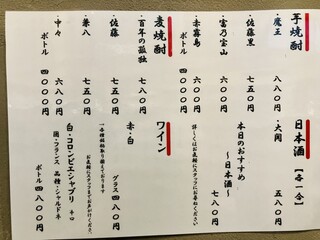 芋焼酎
・魔王 八八〇円
・佐藤黒 七五〇円
・富乃宝山 六八〇円
・赤霧島 六〇〇円
ボトル 四〇〇〇円
麦焼酎
・百年の孤独 八八〇円
・佐藤 七五〇円
・兼八 七五〇円
・中々 六八〇円
ボトル 四〇〇〇円
日本酒【各一合】
・大関 五八〇円
本日のおすすめ
〜日本酒〜
七八〇円
詳しくはスタッフにお尋ねください
ワイン
赤・白
グラス 四八〇円
お気軽にスタッフまでお声がけくださ
白・コロンビエ・シャブリ 辛口
国・フランス 品種・シャルドネ
ボトル 四八〇〇円